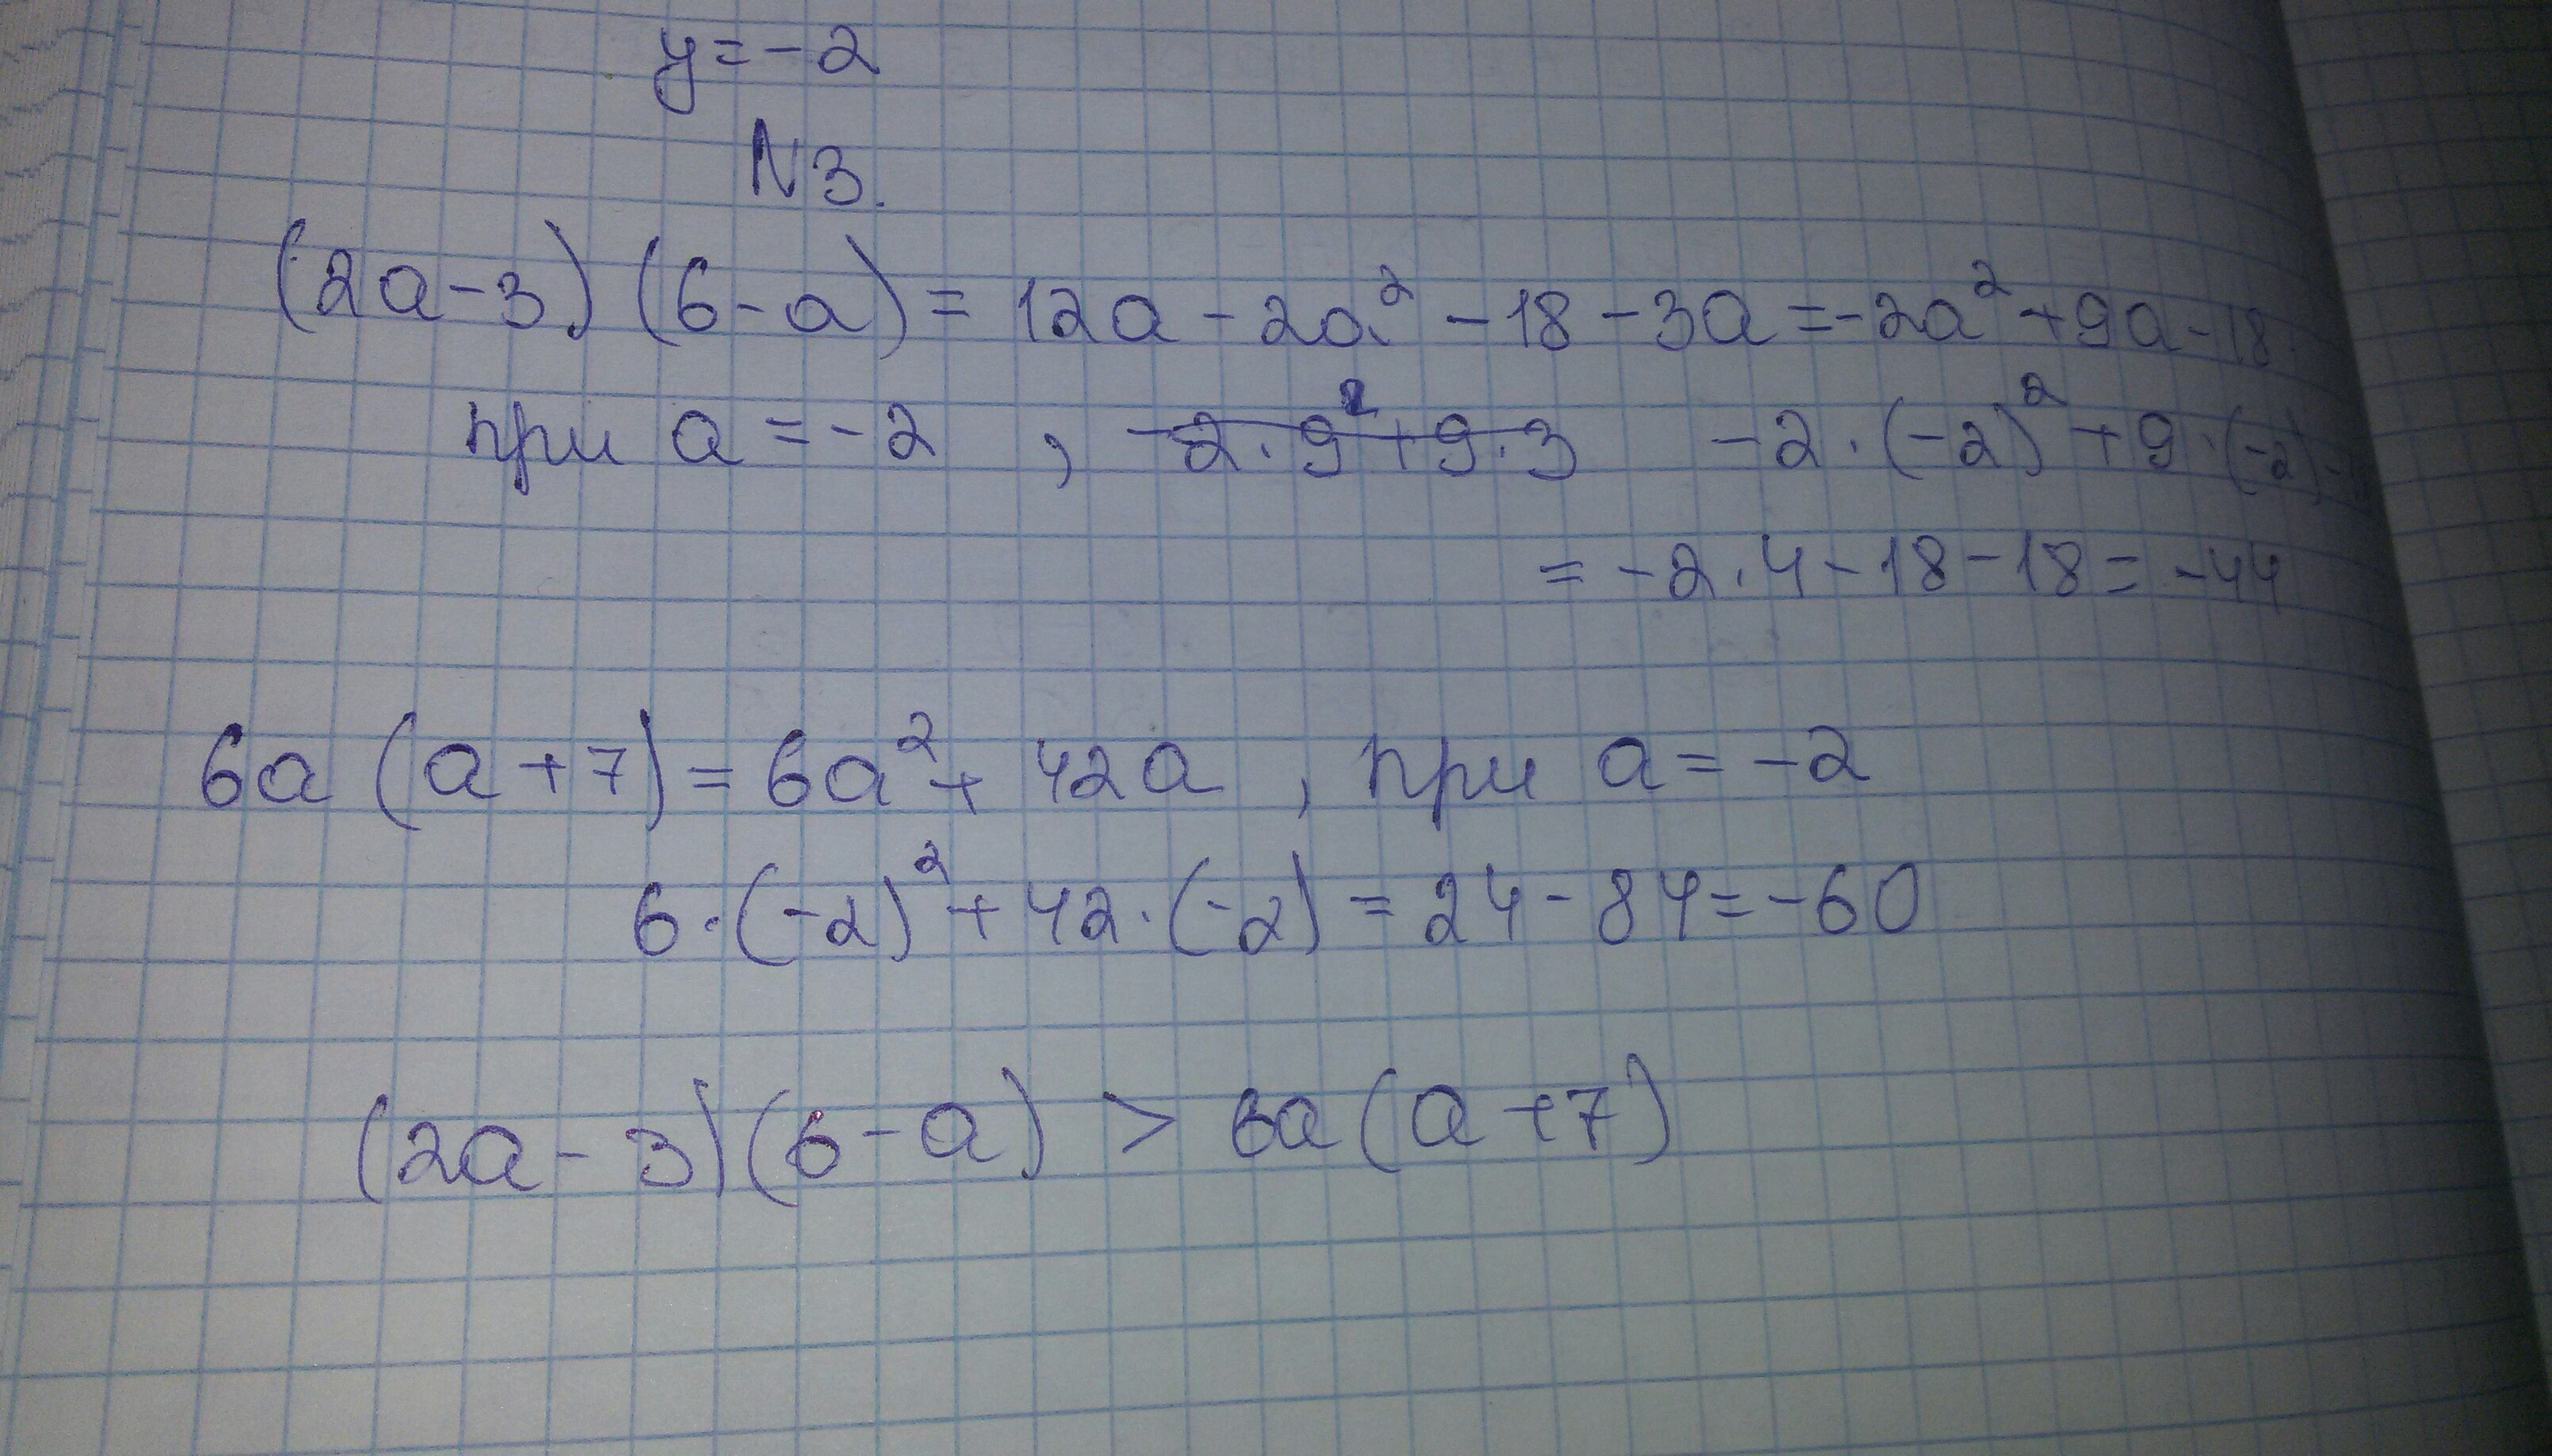 y=-2
N3.
(2a-3)(6-a)=12a-2a²-18-3a=-2a²+9a-18
при a=-2 , -2·9²+9·3 -2·(-2)²+9·(-2)-
=-2·4-18-18=-44
6a(a+7)=6a²+42a, при a=-2
6·(-2)²+42·(-2)=24-84=-60
(2a-3)(6-a)>6a(a+7)